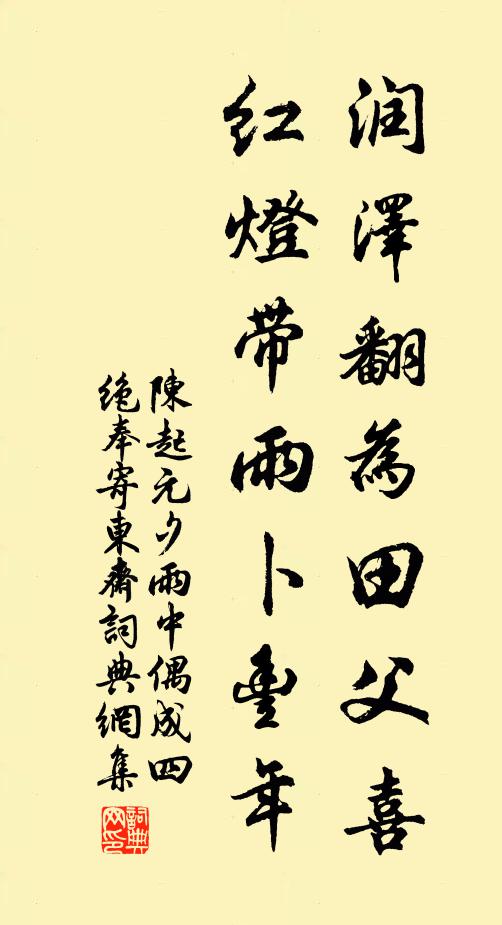 润澤翻為田父喜
红燈帶雨卜豊年
陳起元夕雨中偶成四
绝奉寄東齋詞典網集
詞典
网印